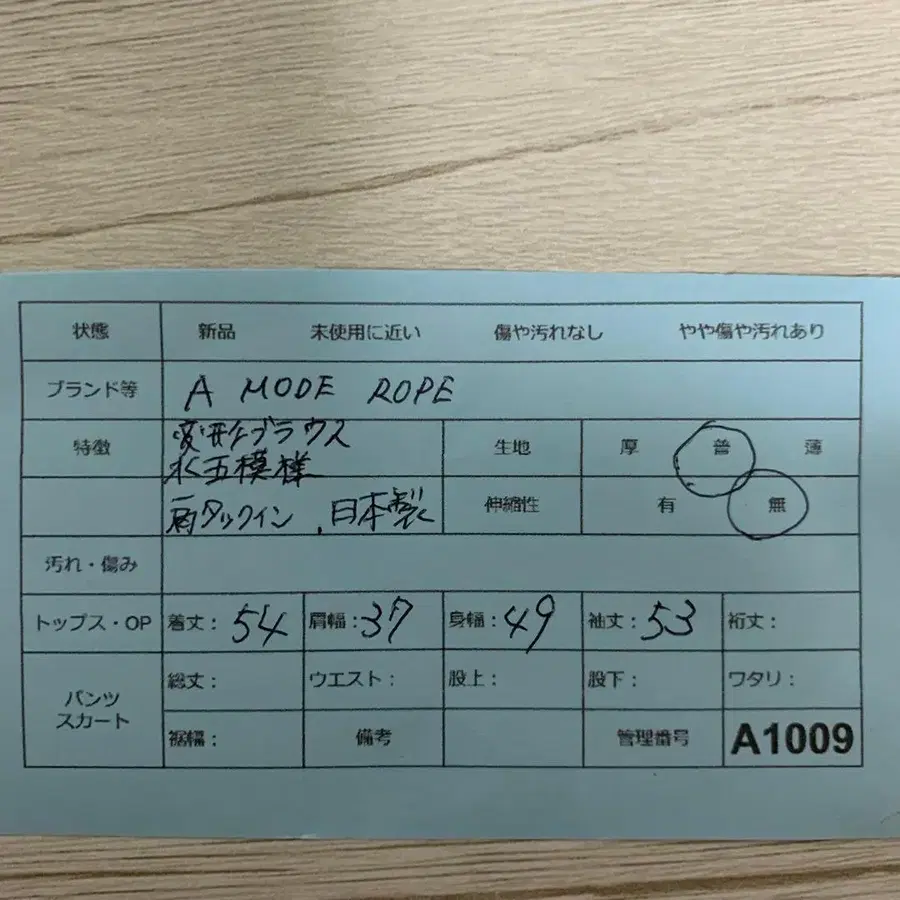 状態 新品 未使用に近い 傷や汚れなし やや傷や汚れあり
ブランド等 A MODE ROPE
特徴 変形ブラウス 生地 厚 普 薄
水玉模様
肩タックイン、日本製 伸縮性 有 無
汚れ・傷み
トップス・OP 着丈: 54 肩幅: 37 身幅: 49 袖丈: 53 裄丈:
パンツ スカート 総丈: ウエスト: 股上: 股下: ワタリ:
裾幅: 備考 管理番号 A1009